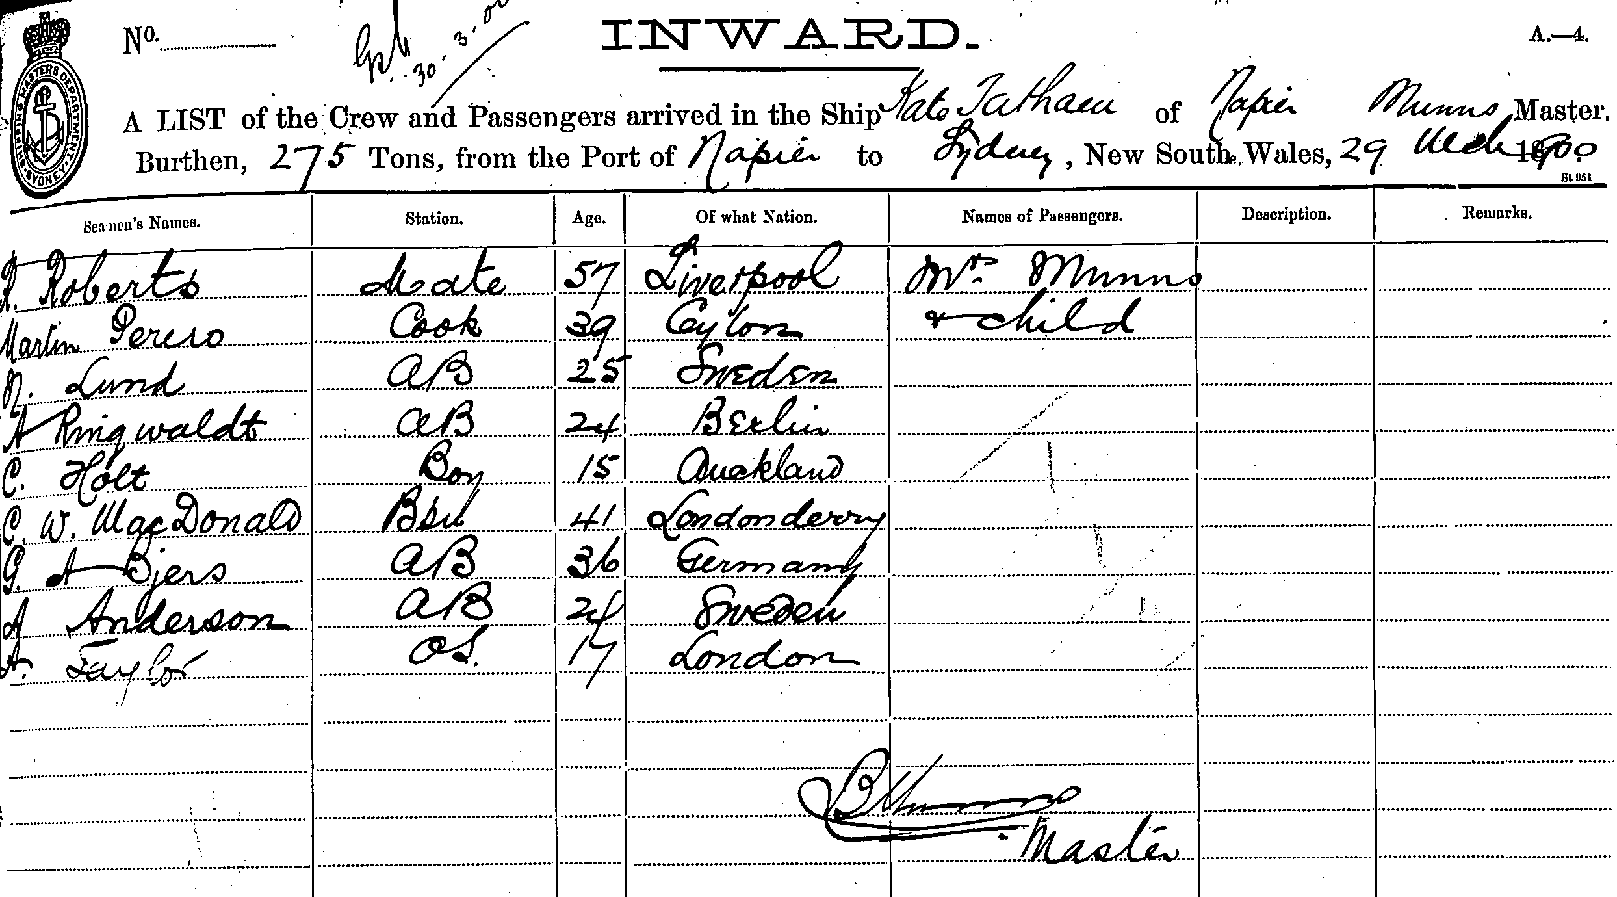 No.
30.3.00
INWARD.
A.—4.
A LIST of the Crew and Passengers arrived in the Ship Kate Tatham of Napier Munns Master.
Burthen, 275 Tons, from the Port of Napier to Sydney, New South Wales, 29 Mch 1900
Seamen's Names. Station. Age. Of what Nation. Names of Passengers. Description. Remarks.
R. Roberts Mate 57 Liverpool Mrs. Munns
Martin Perero Cook 39 Ceylon + child
N. Lund AB 25 Sweden
A Ringwaldt AB 24 Berlin
C. Holt Boy 15 Auckland
C. W. MacDonald 41 Londonderry
G. A Bjers AB 36 Germany
A Anderson AB 24 Sweden
A. Taylor OS. 17 London
B Munns
Master